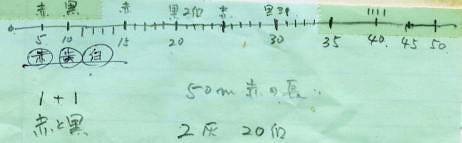 赤 黒 赤 黒2個 赤 黒3個
5 10 15 20 30 35 40 45 50
赤 黄 白
1+1
50m 赤の長
赤と黒
2灰 20個